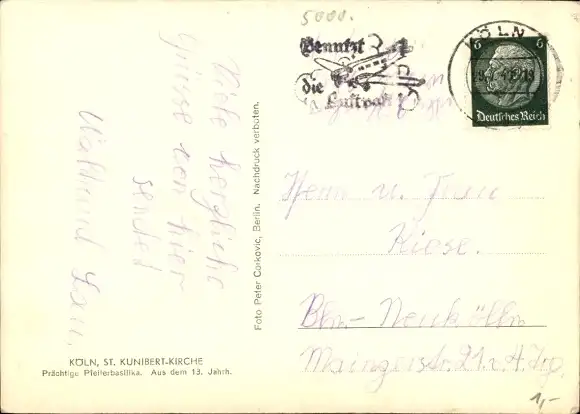 5000.
Benutzt
die
Luftpost
KÖLN
6 6
Deutsches Reich
Viele herzliche
Grüsse von hier
sendet
Waltraud
Herrn u. Frau
Kiese.
Bln.- Neukölln
Mainzerstr. 21 v. 4 Trp.
Foto Peter Corkovic, Berlin. Nachdruck verboten.
KÖLN, ST. KUNIBERT-KIRCHE
Prächtige Pfeilerbasilika. Aus dem 13. Jahrh.
1,-